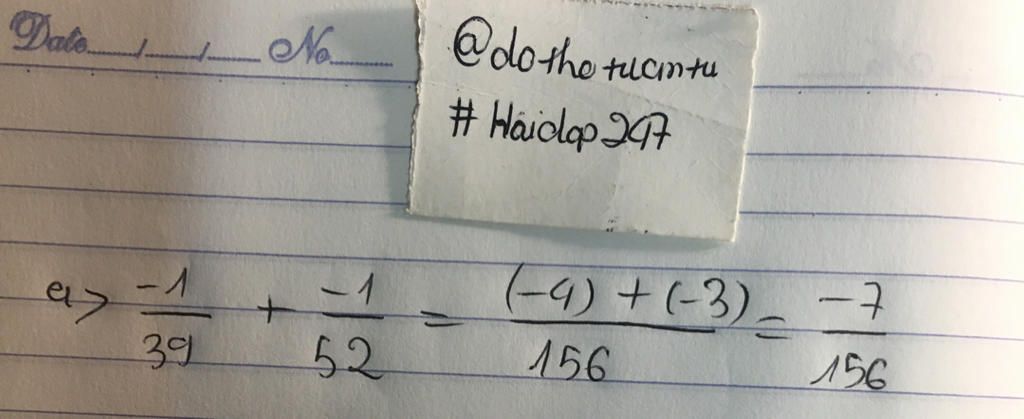 Date...../...../..... No.........
@dothetuantu
#Hoidap247
a> -1/39 + -1/52 = (-4) + (-3)/156 = -7/156